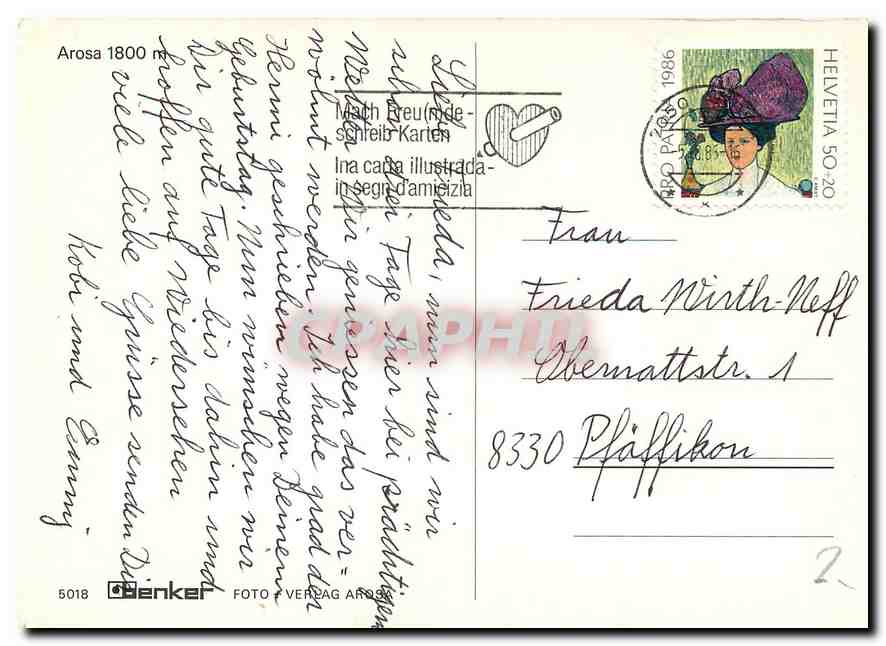 Arosa 1800 m
Liebe Frieda, nun sind wir
schon drei Tage hier bei prächtigem
Wetter. Wir geniessen das ver=
wöhnt werden. Ich habe grad der
Hermi geschrieben wegen Deinem
Geburtstag. Nun wünschen wir
Dir gute Tage bis dahin und
hoffen auf Wiedersehen
viele liebe Grüsse senden Dir
Kobi und Emmy
Mach Freu(n)de-
schreib Karten
Ina carta illustrada-
in segn d'amicizia
PRO PATRIA 1986
HELVETIA 50+20
Frau
Frieda Wirth-Neff
Obermattstr. 1
8330 Pfäffikon
2.
5018 Benker FOTO + VERLAG AROSA
CPAPHIL